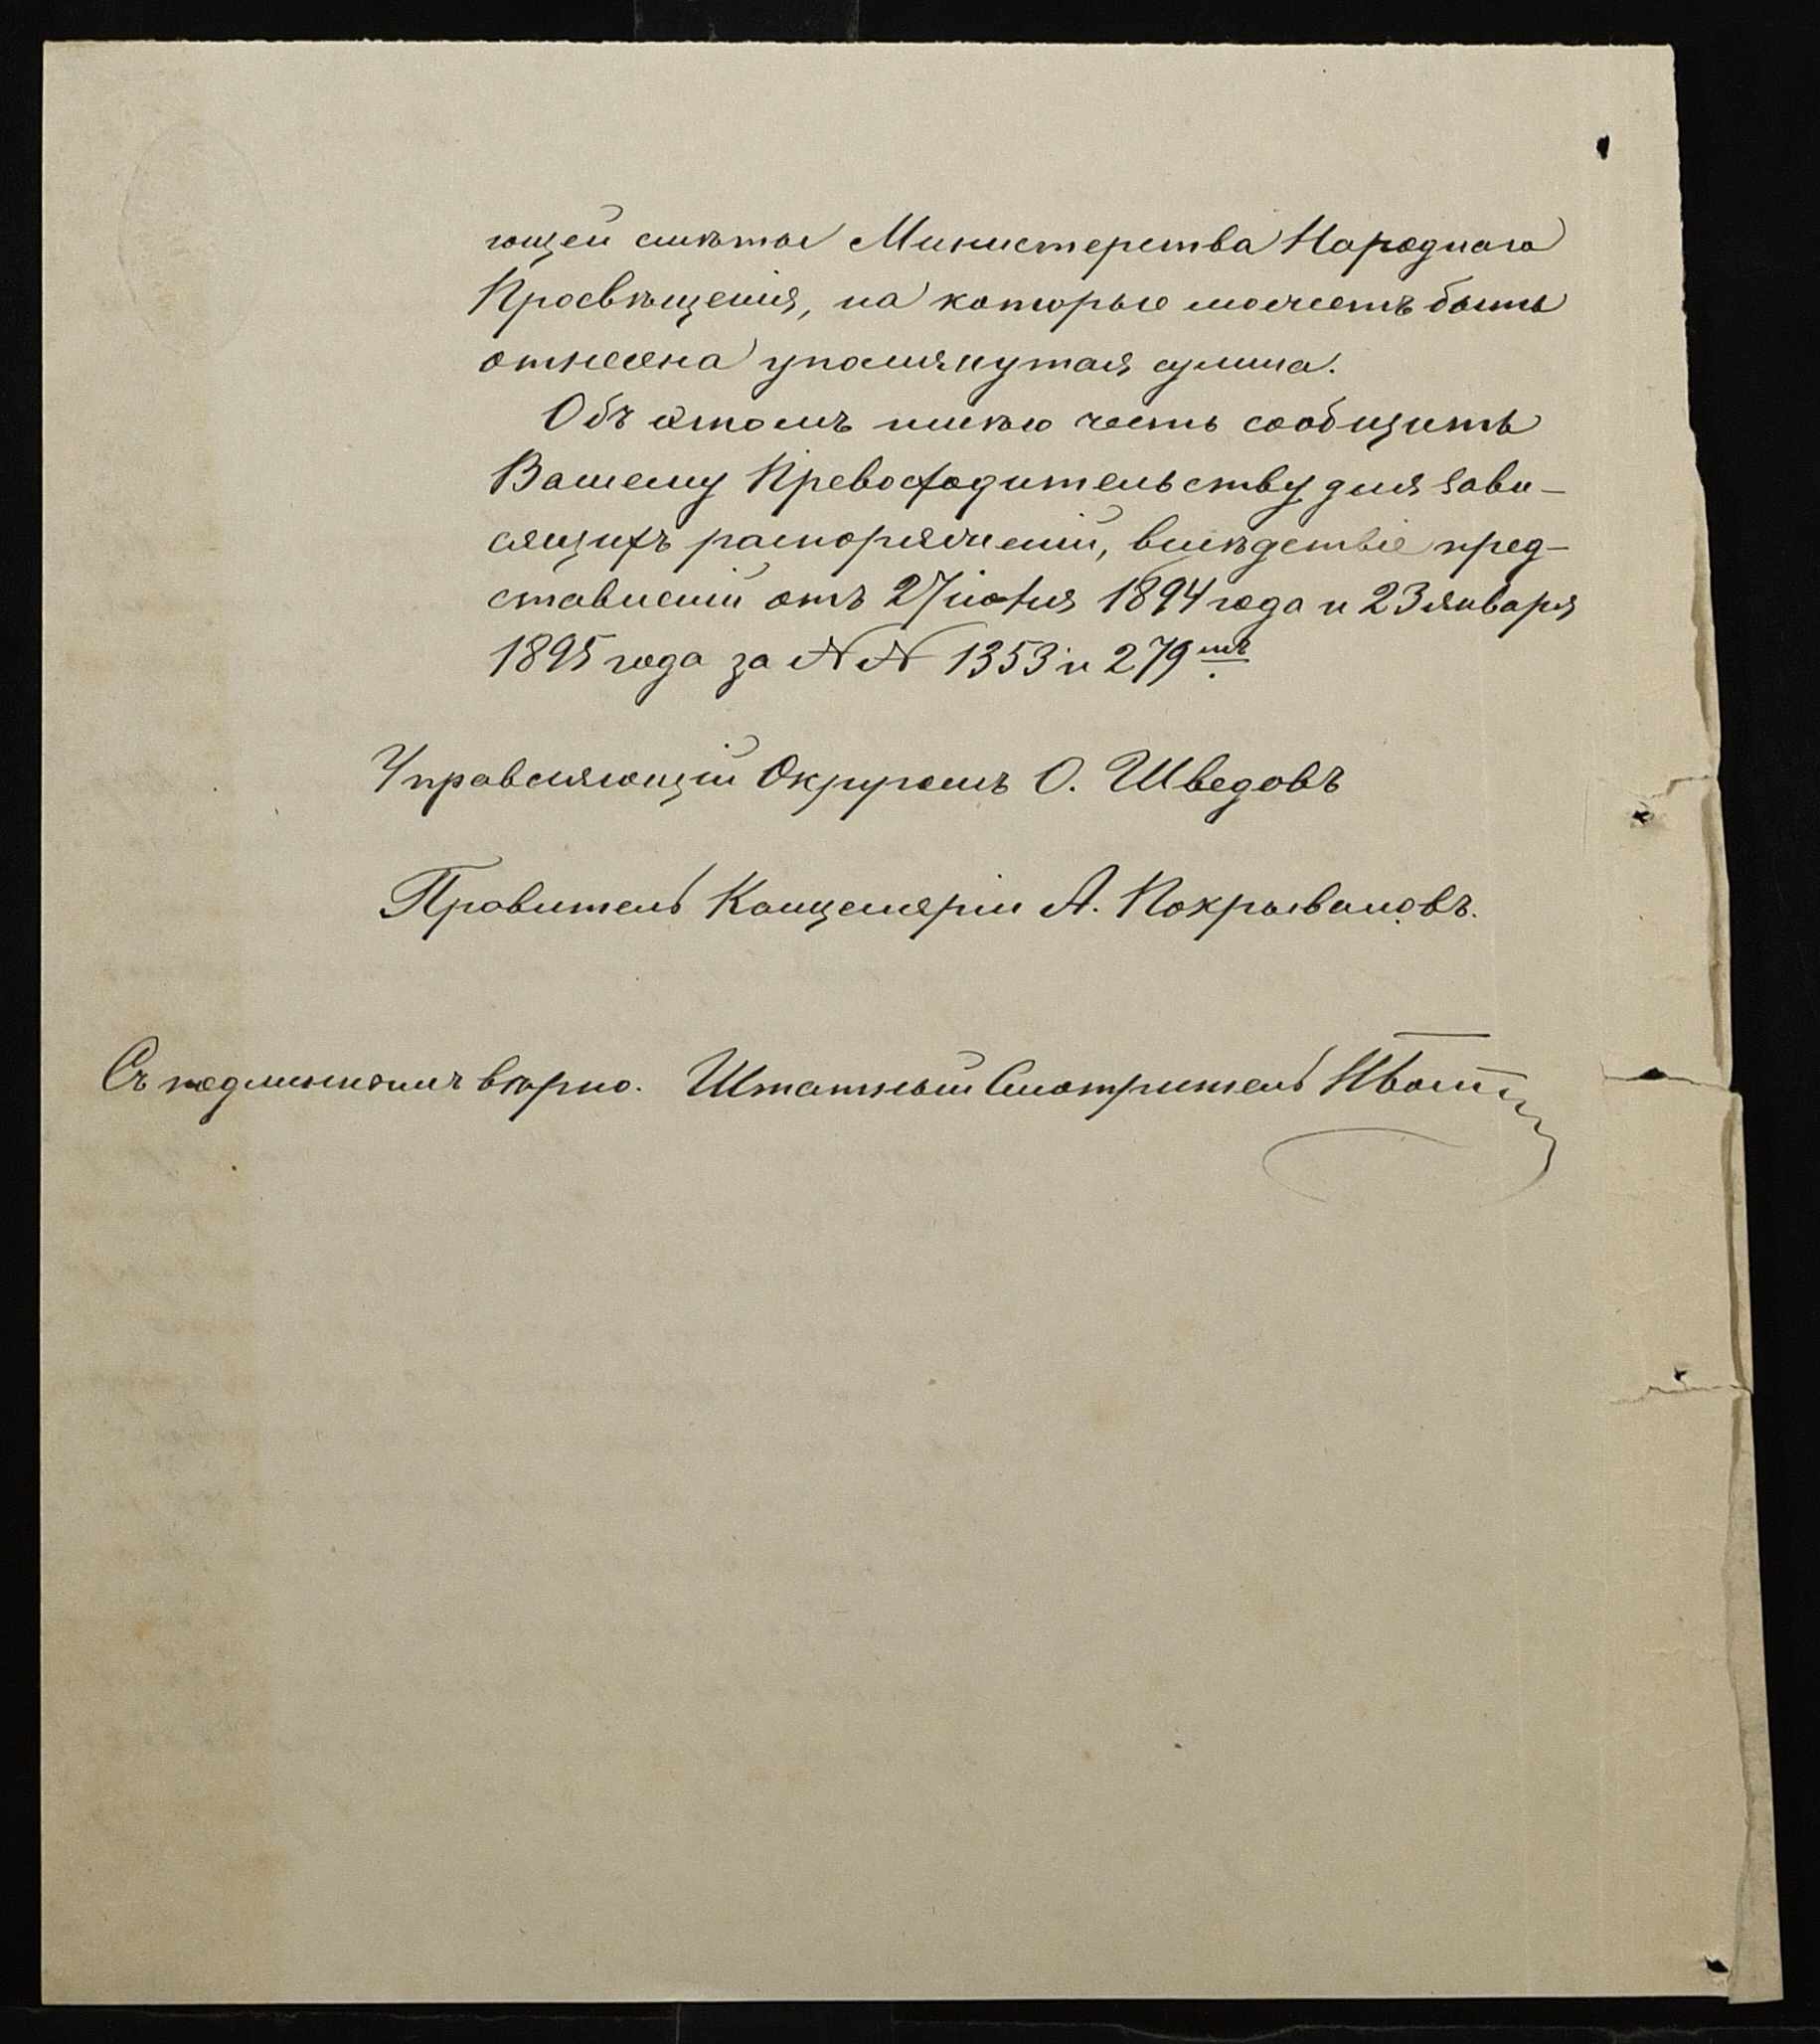 ющей смѣты Министерства Народнаго
Просвѣщенія, на которые можетъ быть
отнесена упомянутая сумма.
Объ этомъ имѣю честь сообщить
Вашему Превосходительству для зави-
сящихъ распоряженій, вслѣдствіе пред-
ставленій отъ 27 іюня 1894 года и 23 января
1895 года за №№ 1353 и 279мъ.
Управляющій Округомъ О. Шведовъ
Правитель Канцеляріи А. Покрывановъ.
Съ подлиннымъ вѣрно. Штатный Смотритель